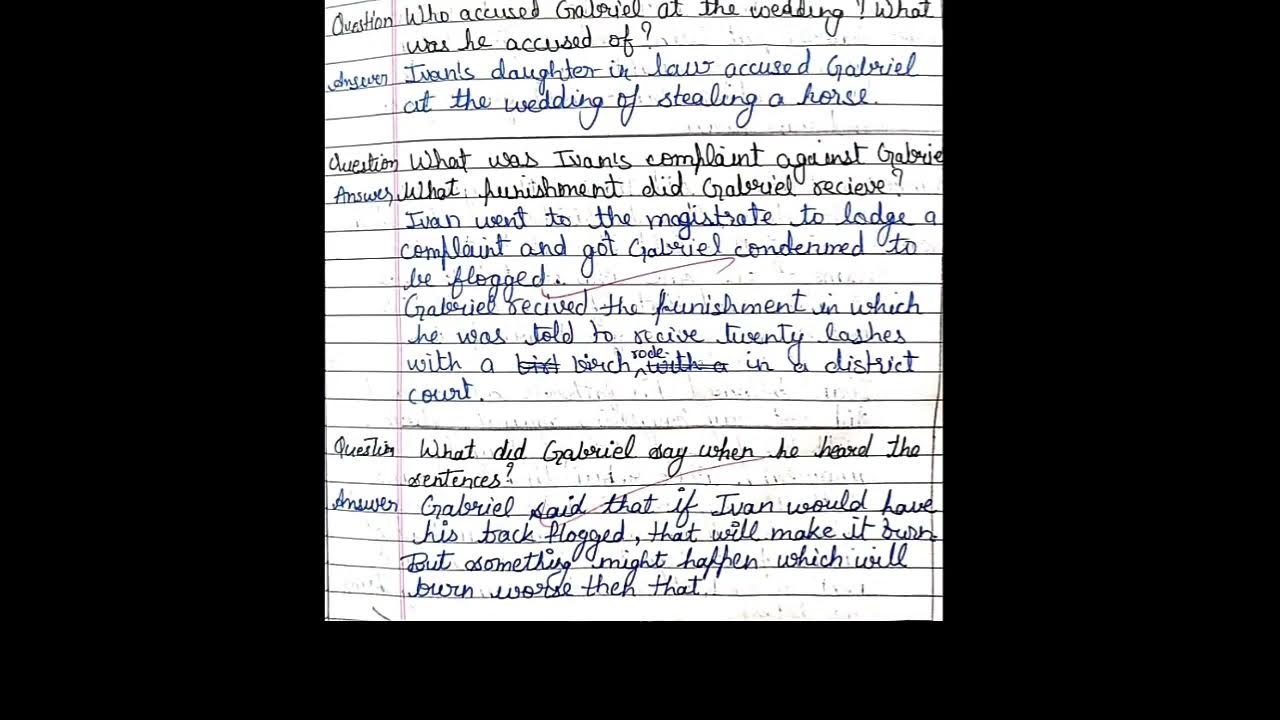 Question Who accused Gabriel at the wedding? What
was he accused of?
Answer Ivan's daughter in law accused Gabriel
at the wedding of stealing a horse.
Question What was Ivan's complaint against Gabrie
Answer What punishment did Gabriel recieve?
Ivan went to the magistrate to lodge a
complaint and got Gabriel condenmed to
be flogged.
Gabriel recived the punishment in which
he was told to recive twenty lashes
with a birch rode in a district
court.
Question What did Gabriel say when he heard the
sentences?
Answer Gabriel said that if Ivan would have
his back flogged, that will make it burn.
But something might happen which will
burn worse then that.